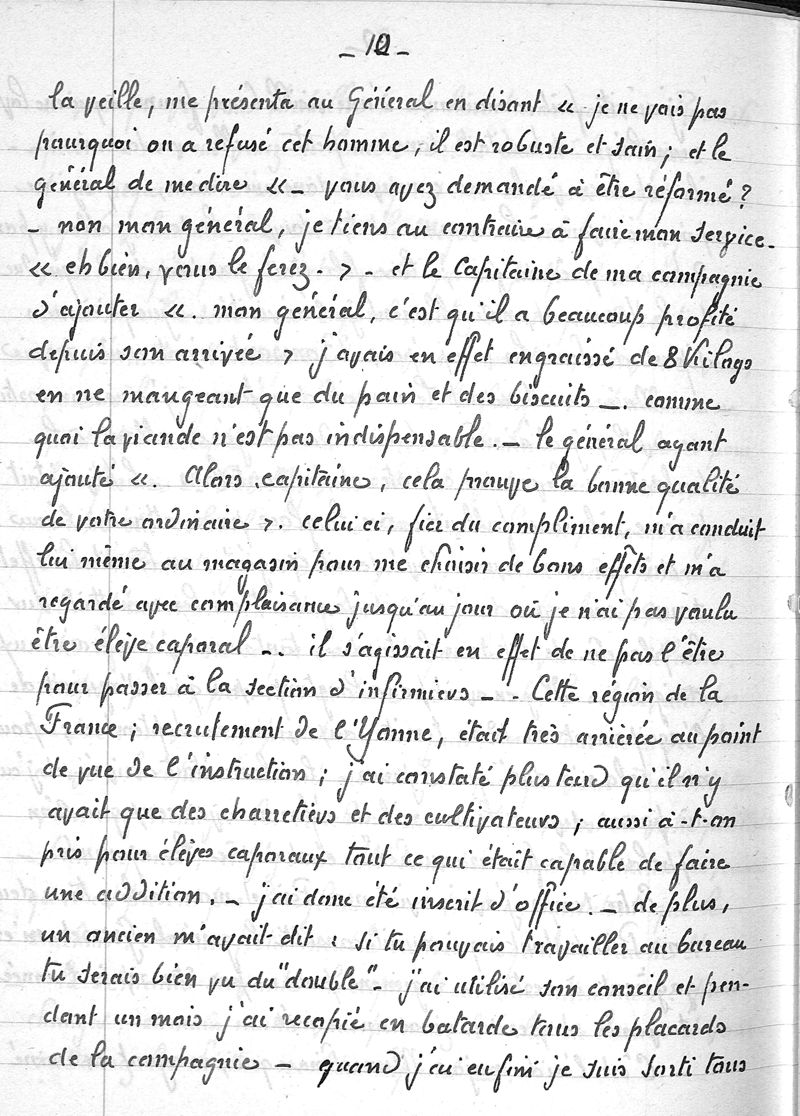 - 10 -
la veille, me présenta au Général en disant « je ne vois pas
pourquoi on a refusé cet homme, il est robuste et sain ; et le
général de me dire « - vous avez demandé à être réformé ?
- non mon général, je tiens au contraire à faire mon service -
« eh bien, vous le ferez - > - et le Capitaine de ma compagnie
d'ajouter « . mon général, c'est qu'il a beaucoup profité
depuis son arrivée > j'avais en effet engraissé de 8 Kilogs
en ne mangeant que du pain et des biscuits - . comme
quoi la viande n'est pas indispensable . - le général ayant
ajouté « . Alors capitaine, cela prouve la bonne qualité
de votre ordinaire > . celui ci, fier du compliment, m'a conduit
lui même au magasin pour me choisir de bons effets et m'a
regardé avec complaisance jusqu'au jour où je n'ai pas voulu
être élève caporal - . il s'agissait en effet de ne pas l'être
pour passer à la section d'infirmiers - . Cette région de la
France ; recrutement de l'Yonne, était très arriérée au point
de vue de l'instruction ; j'ai constaté plus tard qu'il n'y
avait que des charretiers et des cultivateurs ; aussi a-t-on
pris pour élèves caporaux tout ce qui était capable de faire
une addition . - j'ai donc été inscrit d'office . - de plus,
un ancien m'avait dit : si tu pouvais travailler au bureau
tu serais bien vu du "double" - j'ai utilisé son conseil et pen-
dant un mois j'ai recopié en batarde tous les placards
de la compagnie - quand j'ai enfin je suis sorti tous